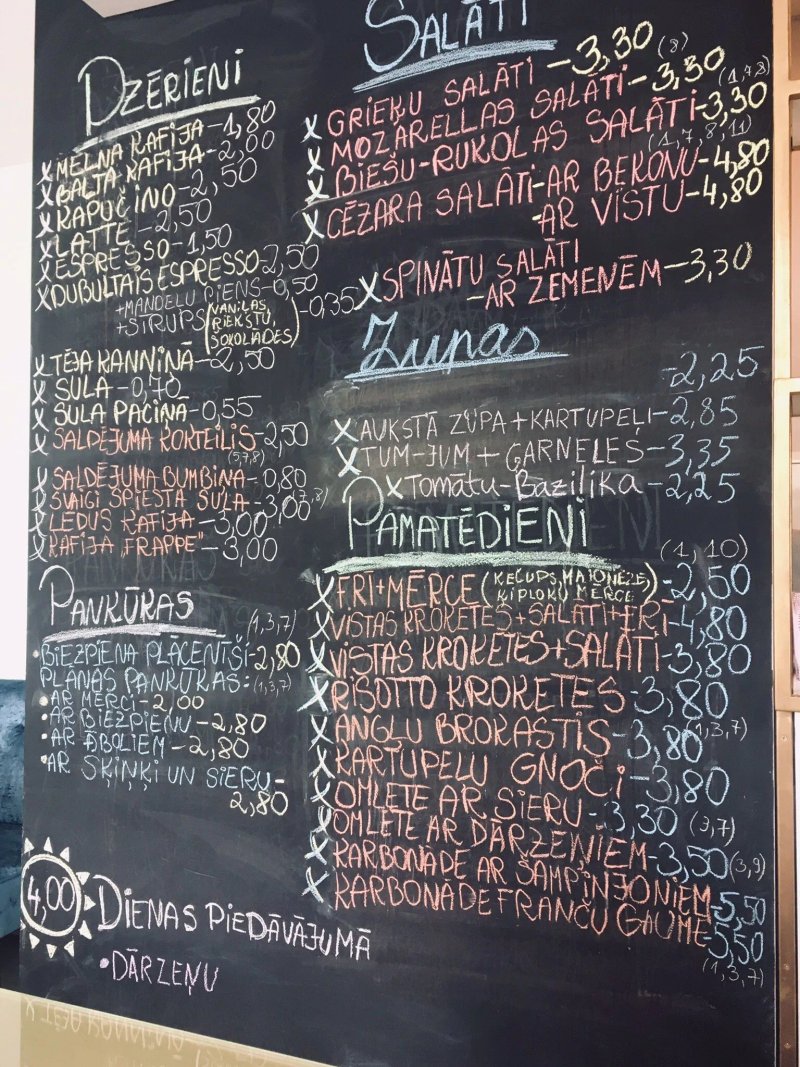 DZĒRIENI
X MELNA KAFIJA - 1,80
X BALTA KAFIJA - 2,00
X KAPUČINO - 2,50
X LATTE - 2,50
X ESPRESSO - 1,50
X DUBULTAIS ESPRESSO - 2,50
+ MANDEĻU PIENS - 0,50
+ SĪRUPS (VANIĻAS, RIEKSTU, ŠOKOLĀDES) - 0,35
X TĒJA KANNIŅĀ - 2,50
X SULA - 0,70
X SULA PACIŅĀ - 0,55
X SALDĒJUMA KOKTEILIS - 2,50
(5,7,8)
X SALDĒJUMA BUMBIŅA - 0,80
(7,8)
X SVAIGI SPIESTA SULA - 3,00
X LEDUS KAFIJA - 3,00
X KAFIJA "FRAPPE" - 3,00
PANKŪKAS
(1,3,7)
• BIEZPIENA PLĀCENĪŠI - 2,80
PLĀNĀS PANKŪKAS: (1,3,7)
• AR MĒRCI - 2,00
• AR BIEZPIENU - 2,80
• AR ĀBOLIEM - 2,80
• AR ŠĶIŅĶI UN SIERU -
2,80
4,00 DIENAS PIEDĀVĀJUMĀ
• DĀRZEŅU
SALĀTI
X GRIEĶU SALĀTI - 3,30 (8)
X MOZARELLAS SALĀTI - 3,30 (1,7,8)
X BIEŠU-RUKOLAS SALĀTI - 3,30
(1,7,8,11)
X CĒZARA SALĀTI - AR BEKONU - 4,80
- AR VISTU - 4,80
X SPINĀTU SALĀTI
- AR ZEMENĒM - 3,30
Zupas
- 2,25
X AUKSTĀ ZUPA + KARTUPEĻI - 2,85
X TUM-JUM + GARNELES - 3,35
X Tomātu-Bazilika - 2,25
PAMATĒDIENI
(1,10)
X FRĪ + MĒRCE (KEČUPS, MAJONĒZE, ĶIPLOKU MĒRCE) - 2,50
X VISTAS KROKETES + SALĀTI + FRĪ - 4,80
X VISTAS KROKETES + SALĀTI - 3,80
X RISOTTO KROKETES - 3,80
X ANGĻU BROKASTIS - 3,80 (1,3,7)
X KARTUPEĻU GNOČI - 3,80
X OMLETE AR SIERU - 3,30 (3,7)
X OMLETE AR DĀRZEŅIEM - 3,50 (3,9)
X KARBONĀDE AR ŠAMPINJONIEM - 5,50
X KARBONĀDE FRANČU GAUMĒ - 5,50
(1,3,7)